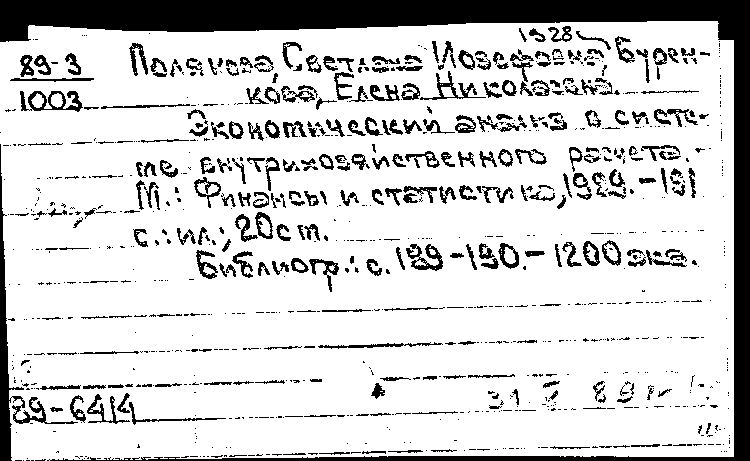 1928
89-3 Полякова, Светлана Иозефовна, Бурен-
1003 кова, Елена Николаевна.
Экономический анализ в систе-
ме внутрихозяйственного расчета.-
М.: Финансы и статистика, 1989.-191
с.: ил.; 20 см.
Библиогр.: с. 189-190.- 1200 экз.
89-6414
31 V 89